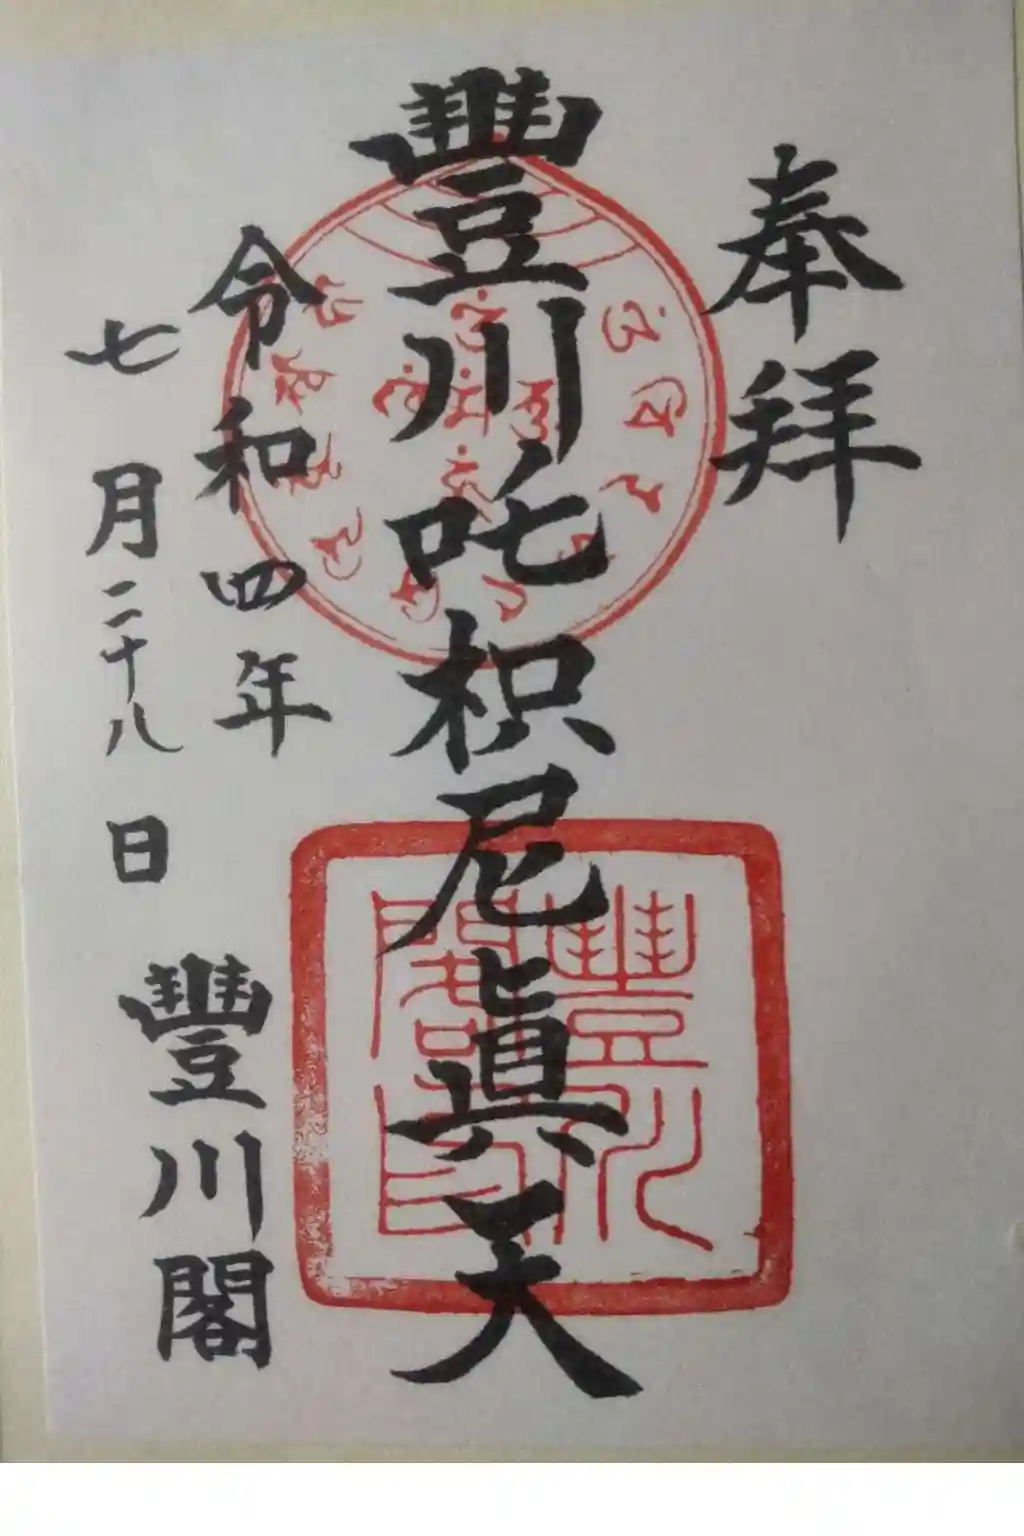 奉拜
豐川吒枳尼眞天
令和四年
七月二十八日
豐川閣
豐川閣印